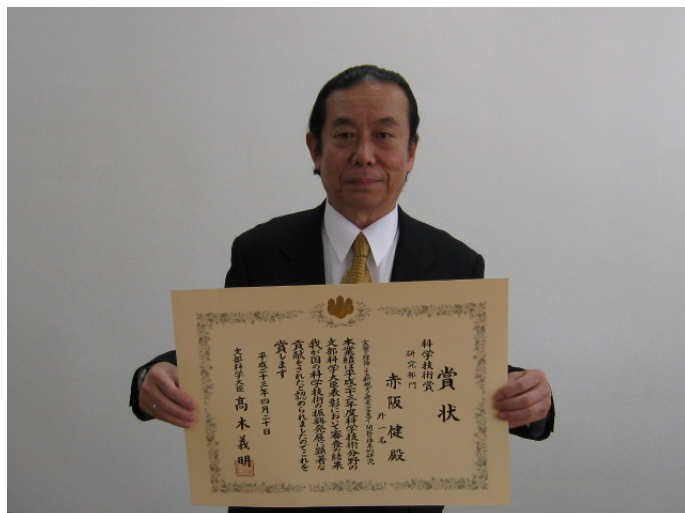 賞状
科学技術賞
研究部門
赤阪健殿
外一名
本業績は平成二十三年度科学技術分野の
文部科学大臣表彰において審査の結果
我が国の科学技術の振興発展に顕著な
貢献をされたと認められましたのでこれを
賞します
平成二十三年四月二十日
文部科学大臣 髙木義明